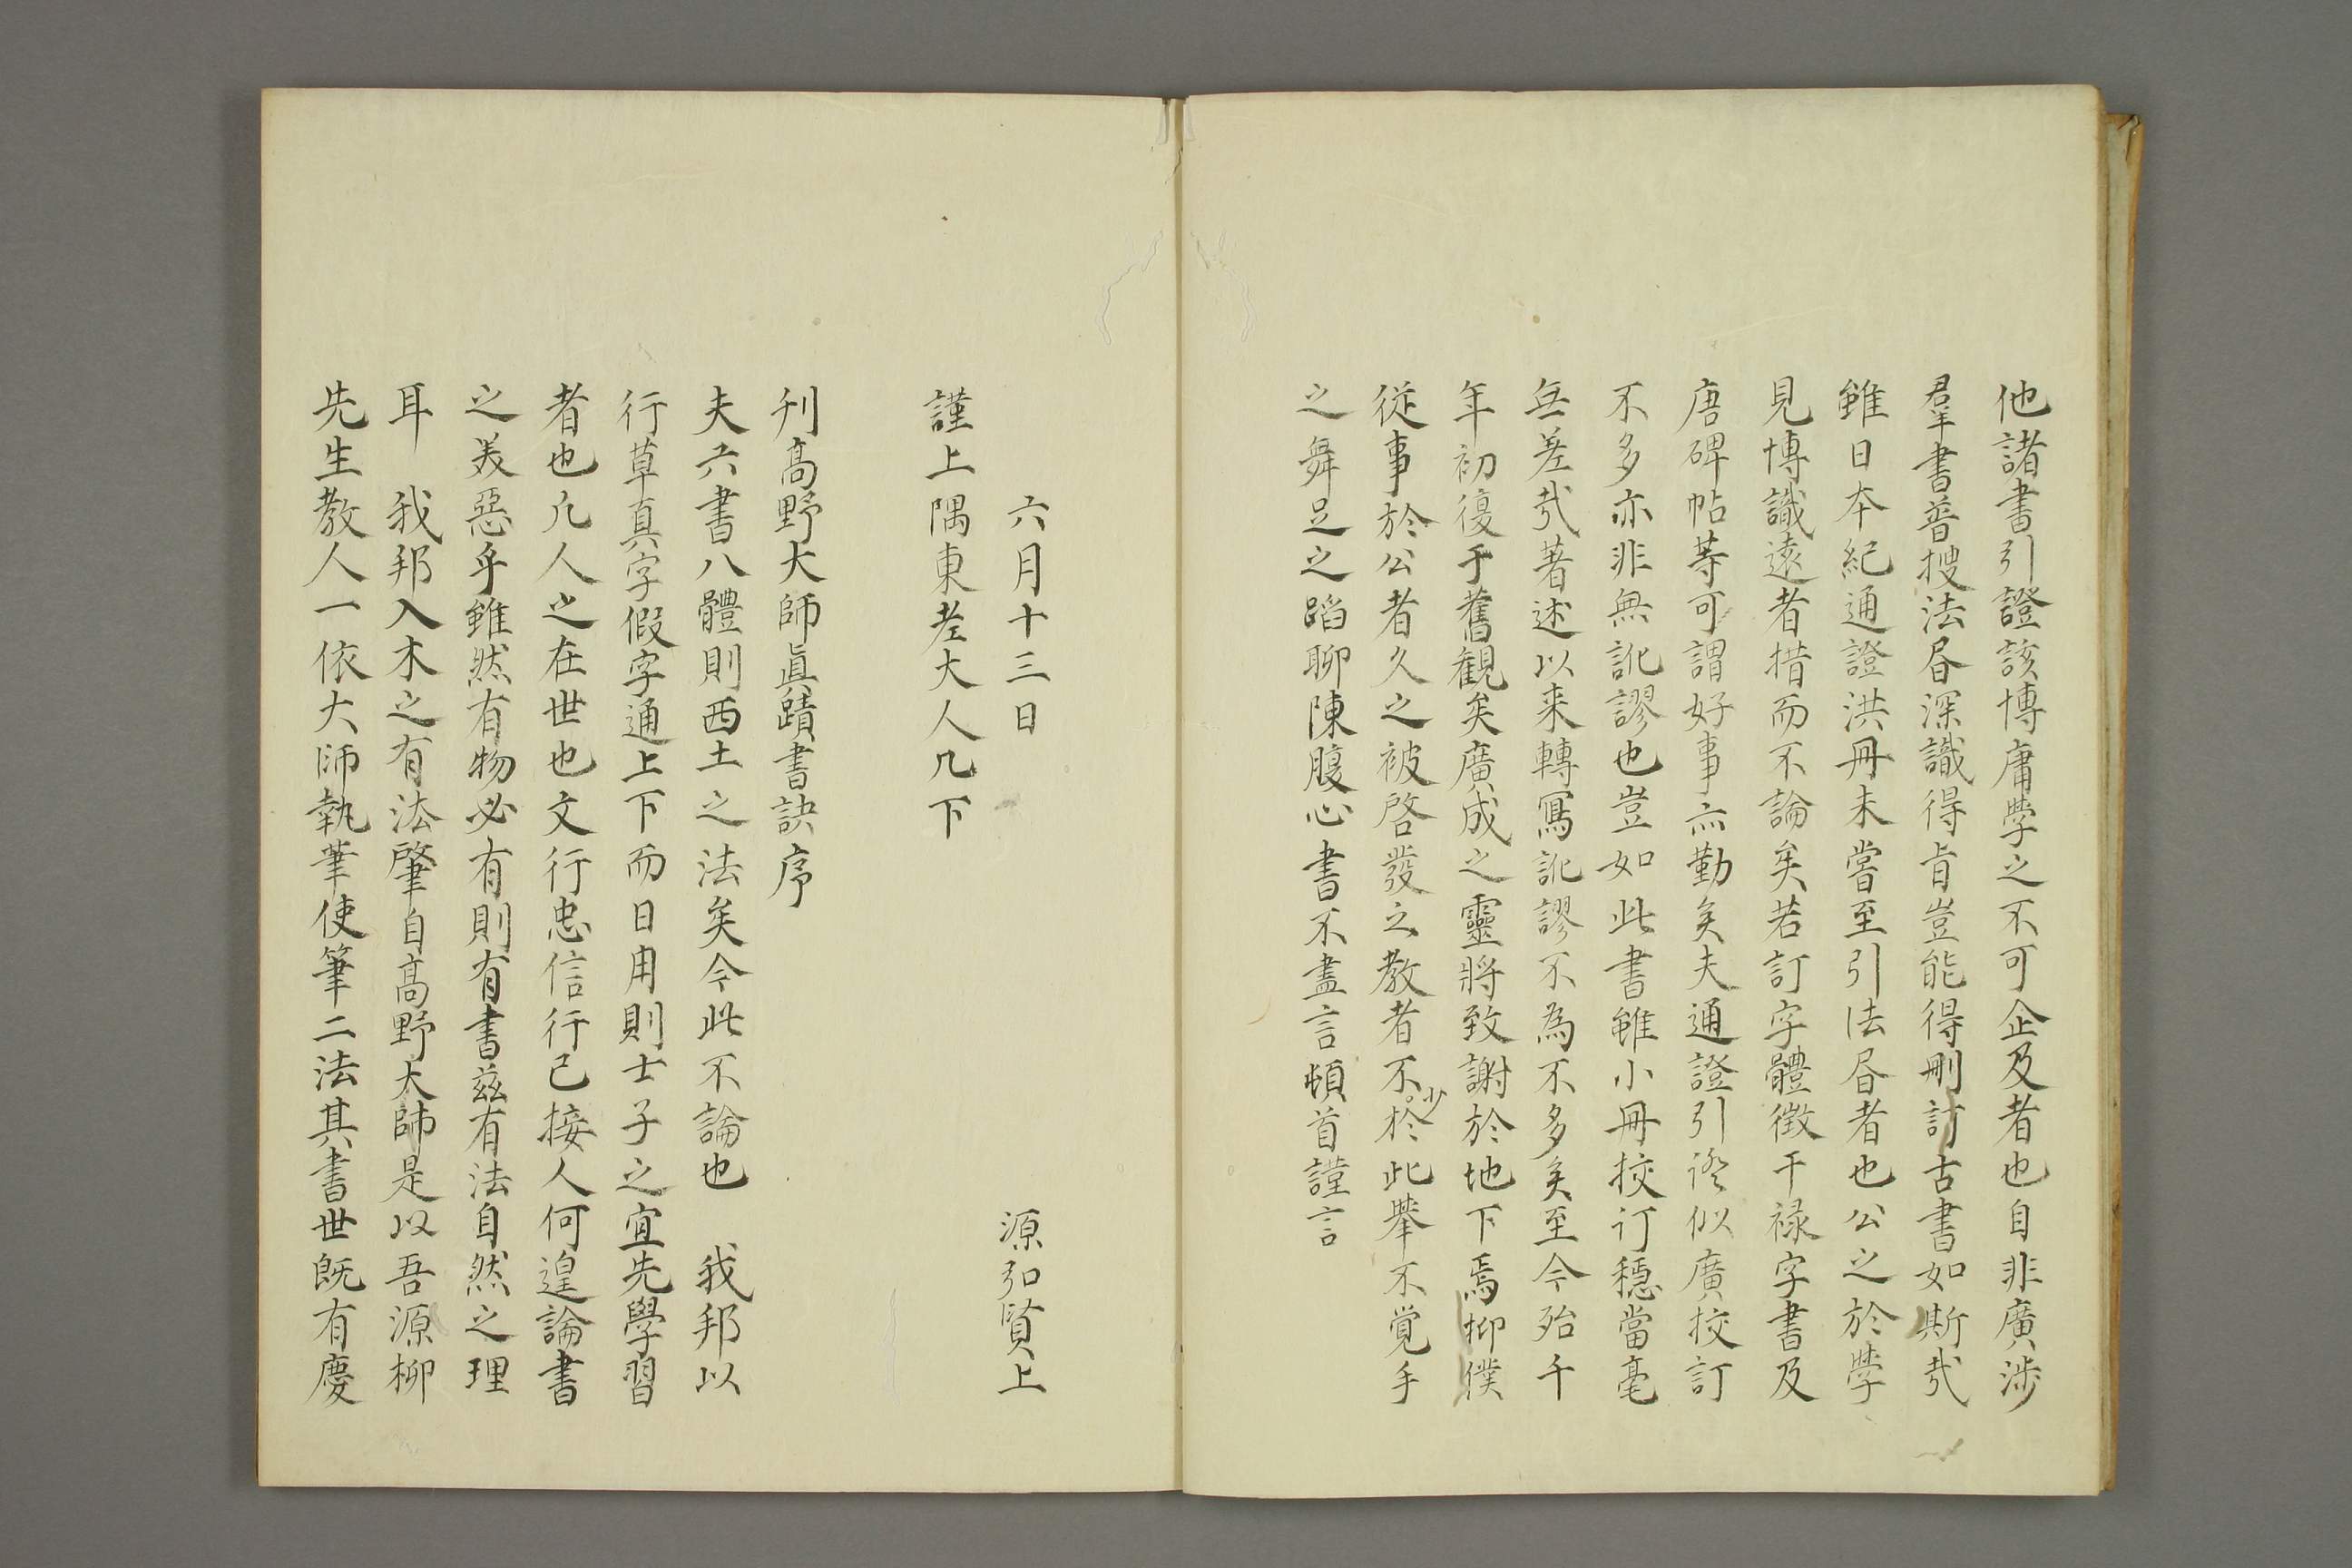 他諸書引證該博庸學之不可企及者也自非廣渉
羣書普搜法昬深識得旨豈能得刪訂古書如斯㦲
雖日本紀通證洪冊未嘗至引法昬者也公之於學
見博識遠者措而不論矣若訂字體徴干禄字書及
唐碑帖等可謂好事亦勤矣夫通證引證似廣挍訂
不多亦非無訛謬也豈如此書雖小冊挍订穏當毫
無差㦲著述以来轉寫訛謬不為不多矣至今殆千
年初復于舊観矣廣成之靈將致謝於地下焉抑僕
従事於公者久之被啓發之教者不少於此舉不覚手
之舞足之蹈聊陳腹心書不盡言頓首謹言
六月十三日　源弘賢上
謹上隅東老大人几下
刊髙野大師眞蹟書訣序
夫六書八體則西土之法矣今此不論也　我邦以
行草真字假字通上下而日用則士子之宜先學習
者也凡人之在世也文行忠信行己接人何遑論書
之美惡乎雖然有物必有則有書茲有法自然之理
耳　我邦入木之有法肇自髙野大師是以吾源柳
先生教人一依大師執筆使筆二法其書世既有慶